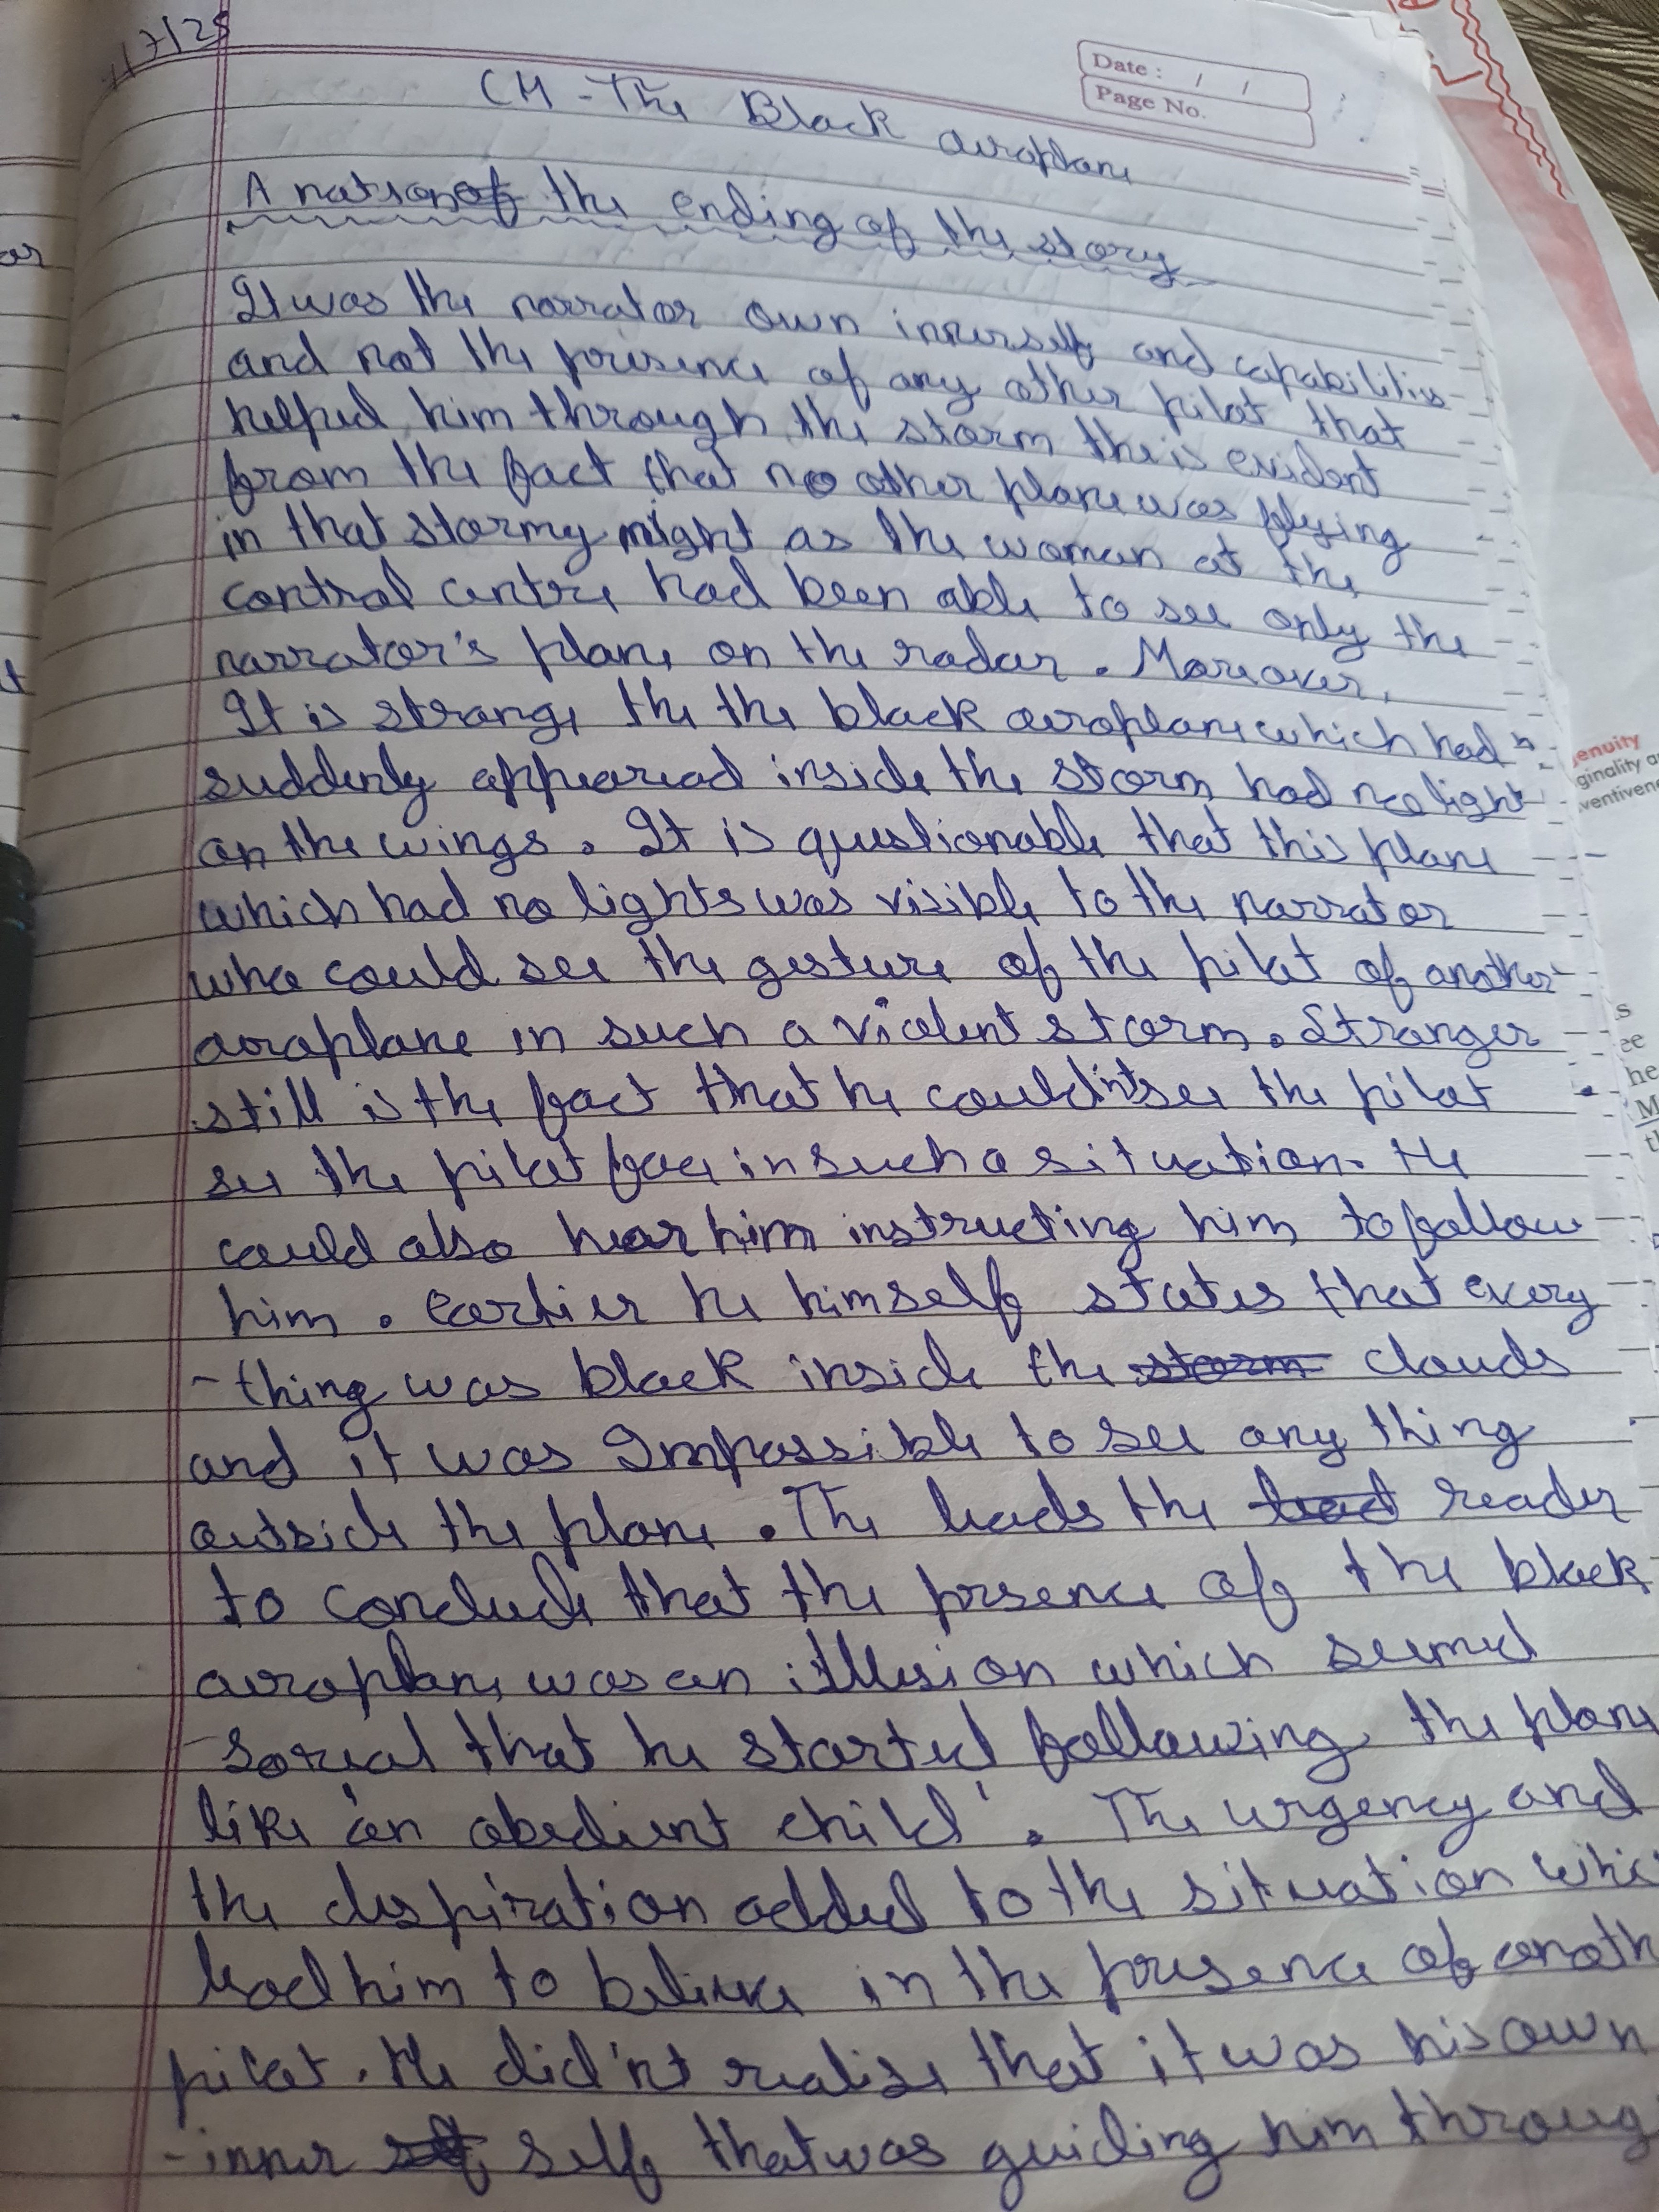 1/7/25
Date : / /
Page No.
CH - The Black aeroplane
A nation of the ending of the story
It was the narrator own innerself and capabilities
and not the presence of any other pilot that
helped him through the storm the is evident
from the fact that no other plane was flying
in that stormy night as the woman at the
control centre had been able to see only the
narrator's plane on the radar. Moreover,
It is strange the the black aeroplane which had
suddenly appearead inside the storm had no light
on the wings. It is questionable that this plane
which had no lights was visible to the narrator
who could see the gesture of the pilot of another
aroaplane in such a violent storm. Stranger
still is the fact that he could'nt see the pilot
see the pilot face in such a situation. He
could also hear him instructing him to follow
him. earlier he himself states that every
-thing was black inside the storm clouds
and it was Impossible to see any thing
outside the plane. The leads the reader
to conclude that the prsence of the black
aeroplane was an illusion which seemed
so real that he started following the plane
like 'an obedient child'. The urgency and
the despiration added to the situation whic
lead him to believe in the presence of anoth
pilot. He did'nt realise that it was his own
-inner self that was guiding him throug
enuity
ginality a
ventiven
s
ee
he
M
t